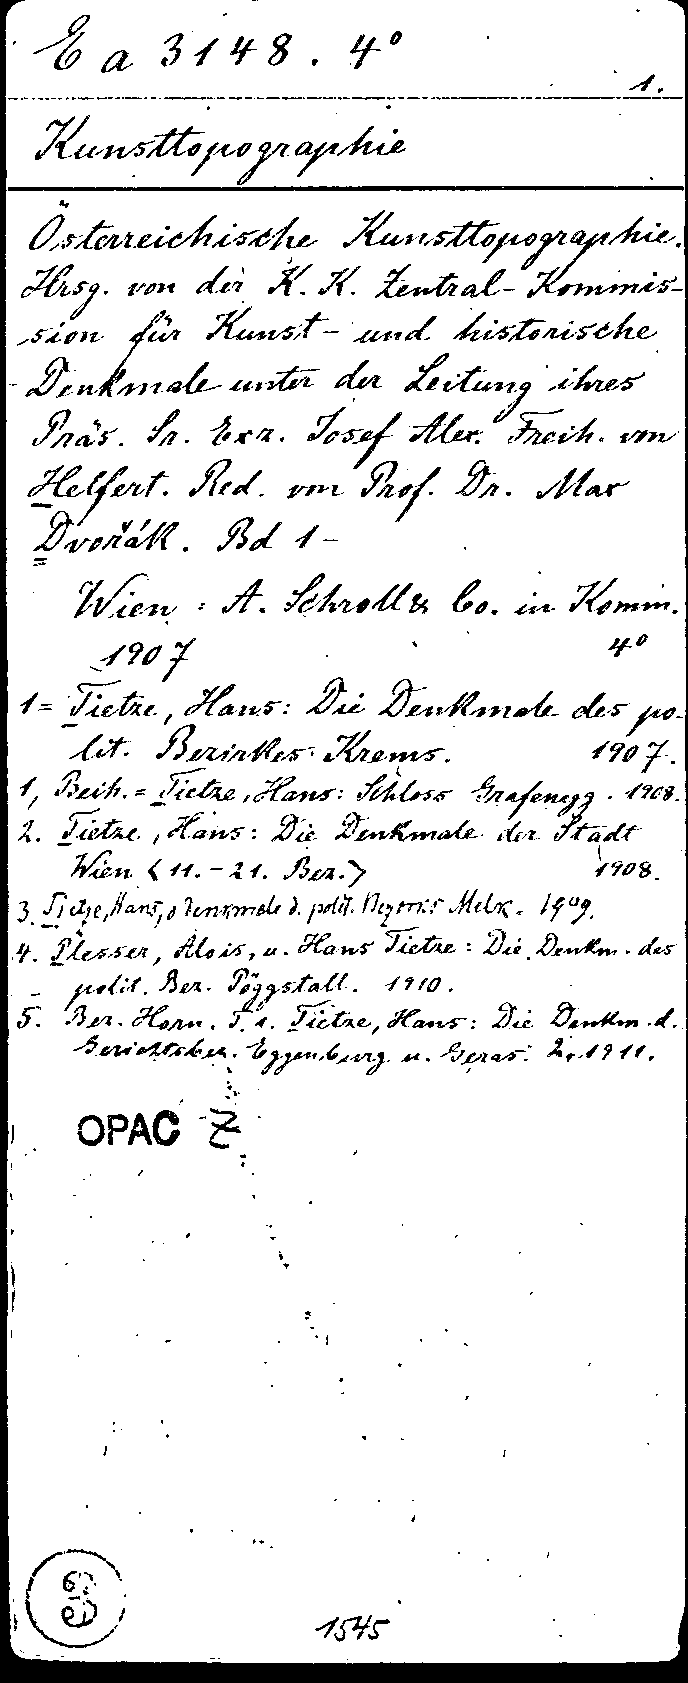 E a 3148. 4°
1.
Kunsttopographie
Österreichische Kunsttopographie.
Hrsg. von der K. K. Zentral-Kommis-
sion für Kunst- und historische
Denkmale unter der Leitung ihres
Präs. Sr. Exz. Josef Alex. Freih. von
Helfert. Red. von Prof. Dr. Max
Dvořák. Bd 1-
Wien : A. Schroll & Co. in Komm.
1907 4°
1 = Tietze, Hans: Die Denkmale des po-
lit. Bezirkes Krems. 1907.
1, Beih. = Tietze, Hans: Schloss Grafenegg. 1908.
2. Tietze, Hans: Die Denkmale der Stadt
Wien <11.-21. Bez.> 1908.
3. Tietze, Hans, d Denkmale d. polit. Bezirks Melk. 1909.
4. Plesser, Alois, u. Hans Tietze: Die Denkm. des
polit. Bez. Pöggstall. 1910.
5. Bez. Horn. T. 1. Tietze, Hans: Die Denkm. d.
Gerichtsbez. Eggenburg u. Geras. 1911.
OPAC Z
3
1545